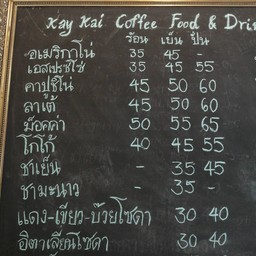 Kay Kai Coffee Food & Dri
ร้อน เย็น ปั่น
อเมริกาโน่ 35 45 -
เอสเปรซโซ่ 35 45 55
คาปูชิโน่ 45 50 60
ลาเต้ 45 50 60
ม็อคค่า 50 55 65
โกโก้ 40 45 55
ชาเย็น - 35 45
ชามะนาว - 35 -
แดง-เขียว-บ๊วยโซดา 30 40
อิตาเลี่ยนโซดา 30 40